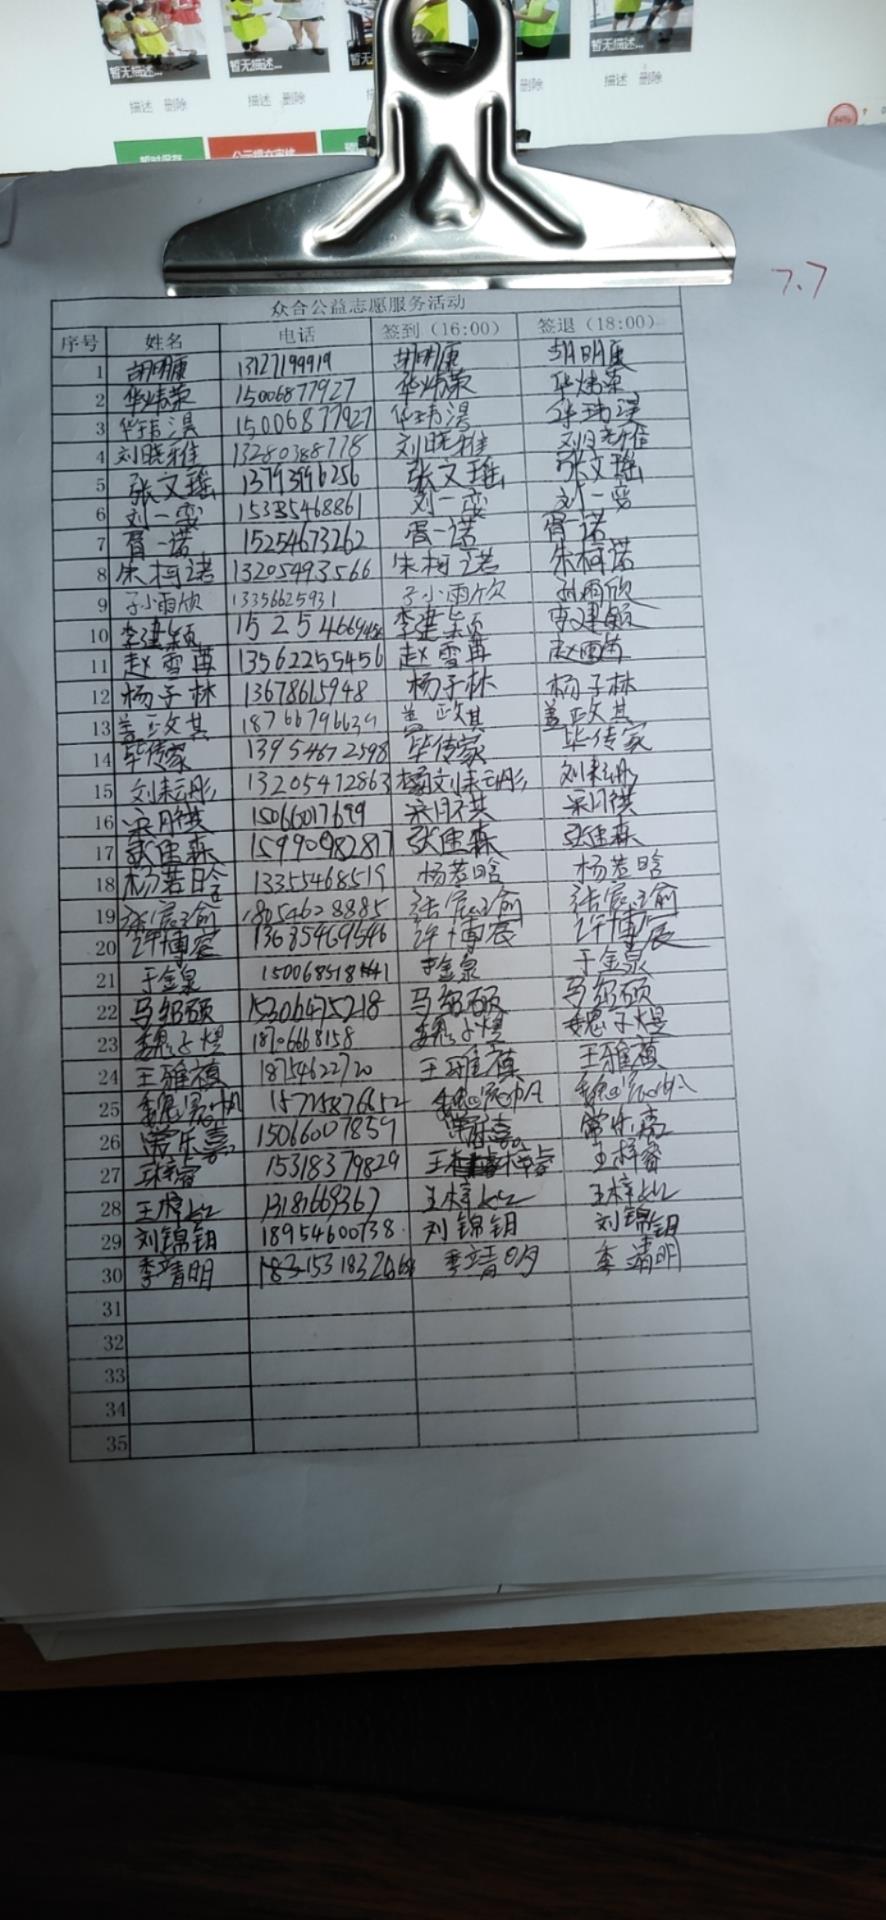 暂无描述...
暂无描述...
暂无描述...
描述 删除
描述 删除
删除
描述 删除
7.7
众合公益志愿服务活动
序号 姓名 电话 签到（16:00） 签退（18:00）
1 胡明康 胡明康 胡明康
2 华炜荣 15006877927 华炜荣 华炜荣
3 华玮淏 15006877927 华玮淏 华玮淏
4 刘晓雅 13280388778 刘晓雅 刘晓雅
5 张文瑶 张文瑶 张文瑶
6 刘一雯 15335468861 刘一雯 刘一雯
7 胥一诺 15254673262 胥一诺 胥一诺
8 朱柯诺 13205493566 朱柯诺 朱柯诺
9 孙雨欣 13356625931 孙雨欣 孙雨欣
10 李建颖 李建颖 李建颖
11 赵雪苒 13562255456 赵雪苒 赵雪苒
12 杨子林 13678615948 杨子林 杨子林
13 盖政其 18766796639 盖政其 盖政其
14 毕传家 13954672598 毕传家 毕传家
15 刘耘彤 13205472863 刘耘彤 刘耘彤
16 15066017699
17 张佳森 15990982817 张佳森 张佳森
18 杨若晗 13355468519 杨若晗 杨若晗
19 张宸瑜 18054628885 张宸瑜 张宸瑜
20 许博宸 13685469546 许博宸 许博宸
21 于金泉 于金泉 于金泉
22 马绍硕 15306475218 马绍硕 马绍硕
23 魏子煜 18706668158 魏子煜 魏子煜
24 王雅蓓 18754622720 王雅蓓 王雅蓓
25 魏 15715876652 魏 魏
26 常乐嘉 15066007859 常乐嘉 常乐嘉
27 王梓睿 15318379829 王梓睿 王梓睿
28 王梓 13181669367 王梓 王梓
29 刘锦钥 18954600738 刘锦钥 刘锦钥
30 季靖明 季靖明 季靖明
31
32
33
34
35